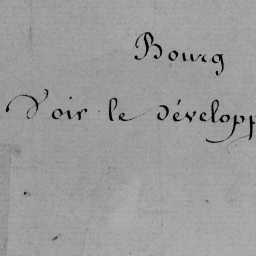 Bourg
Voir le développ